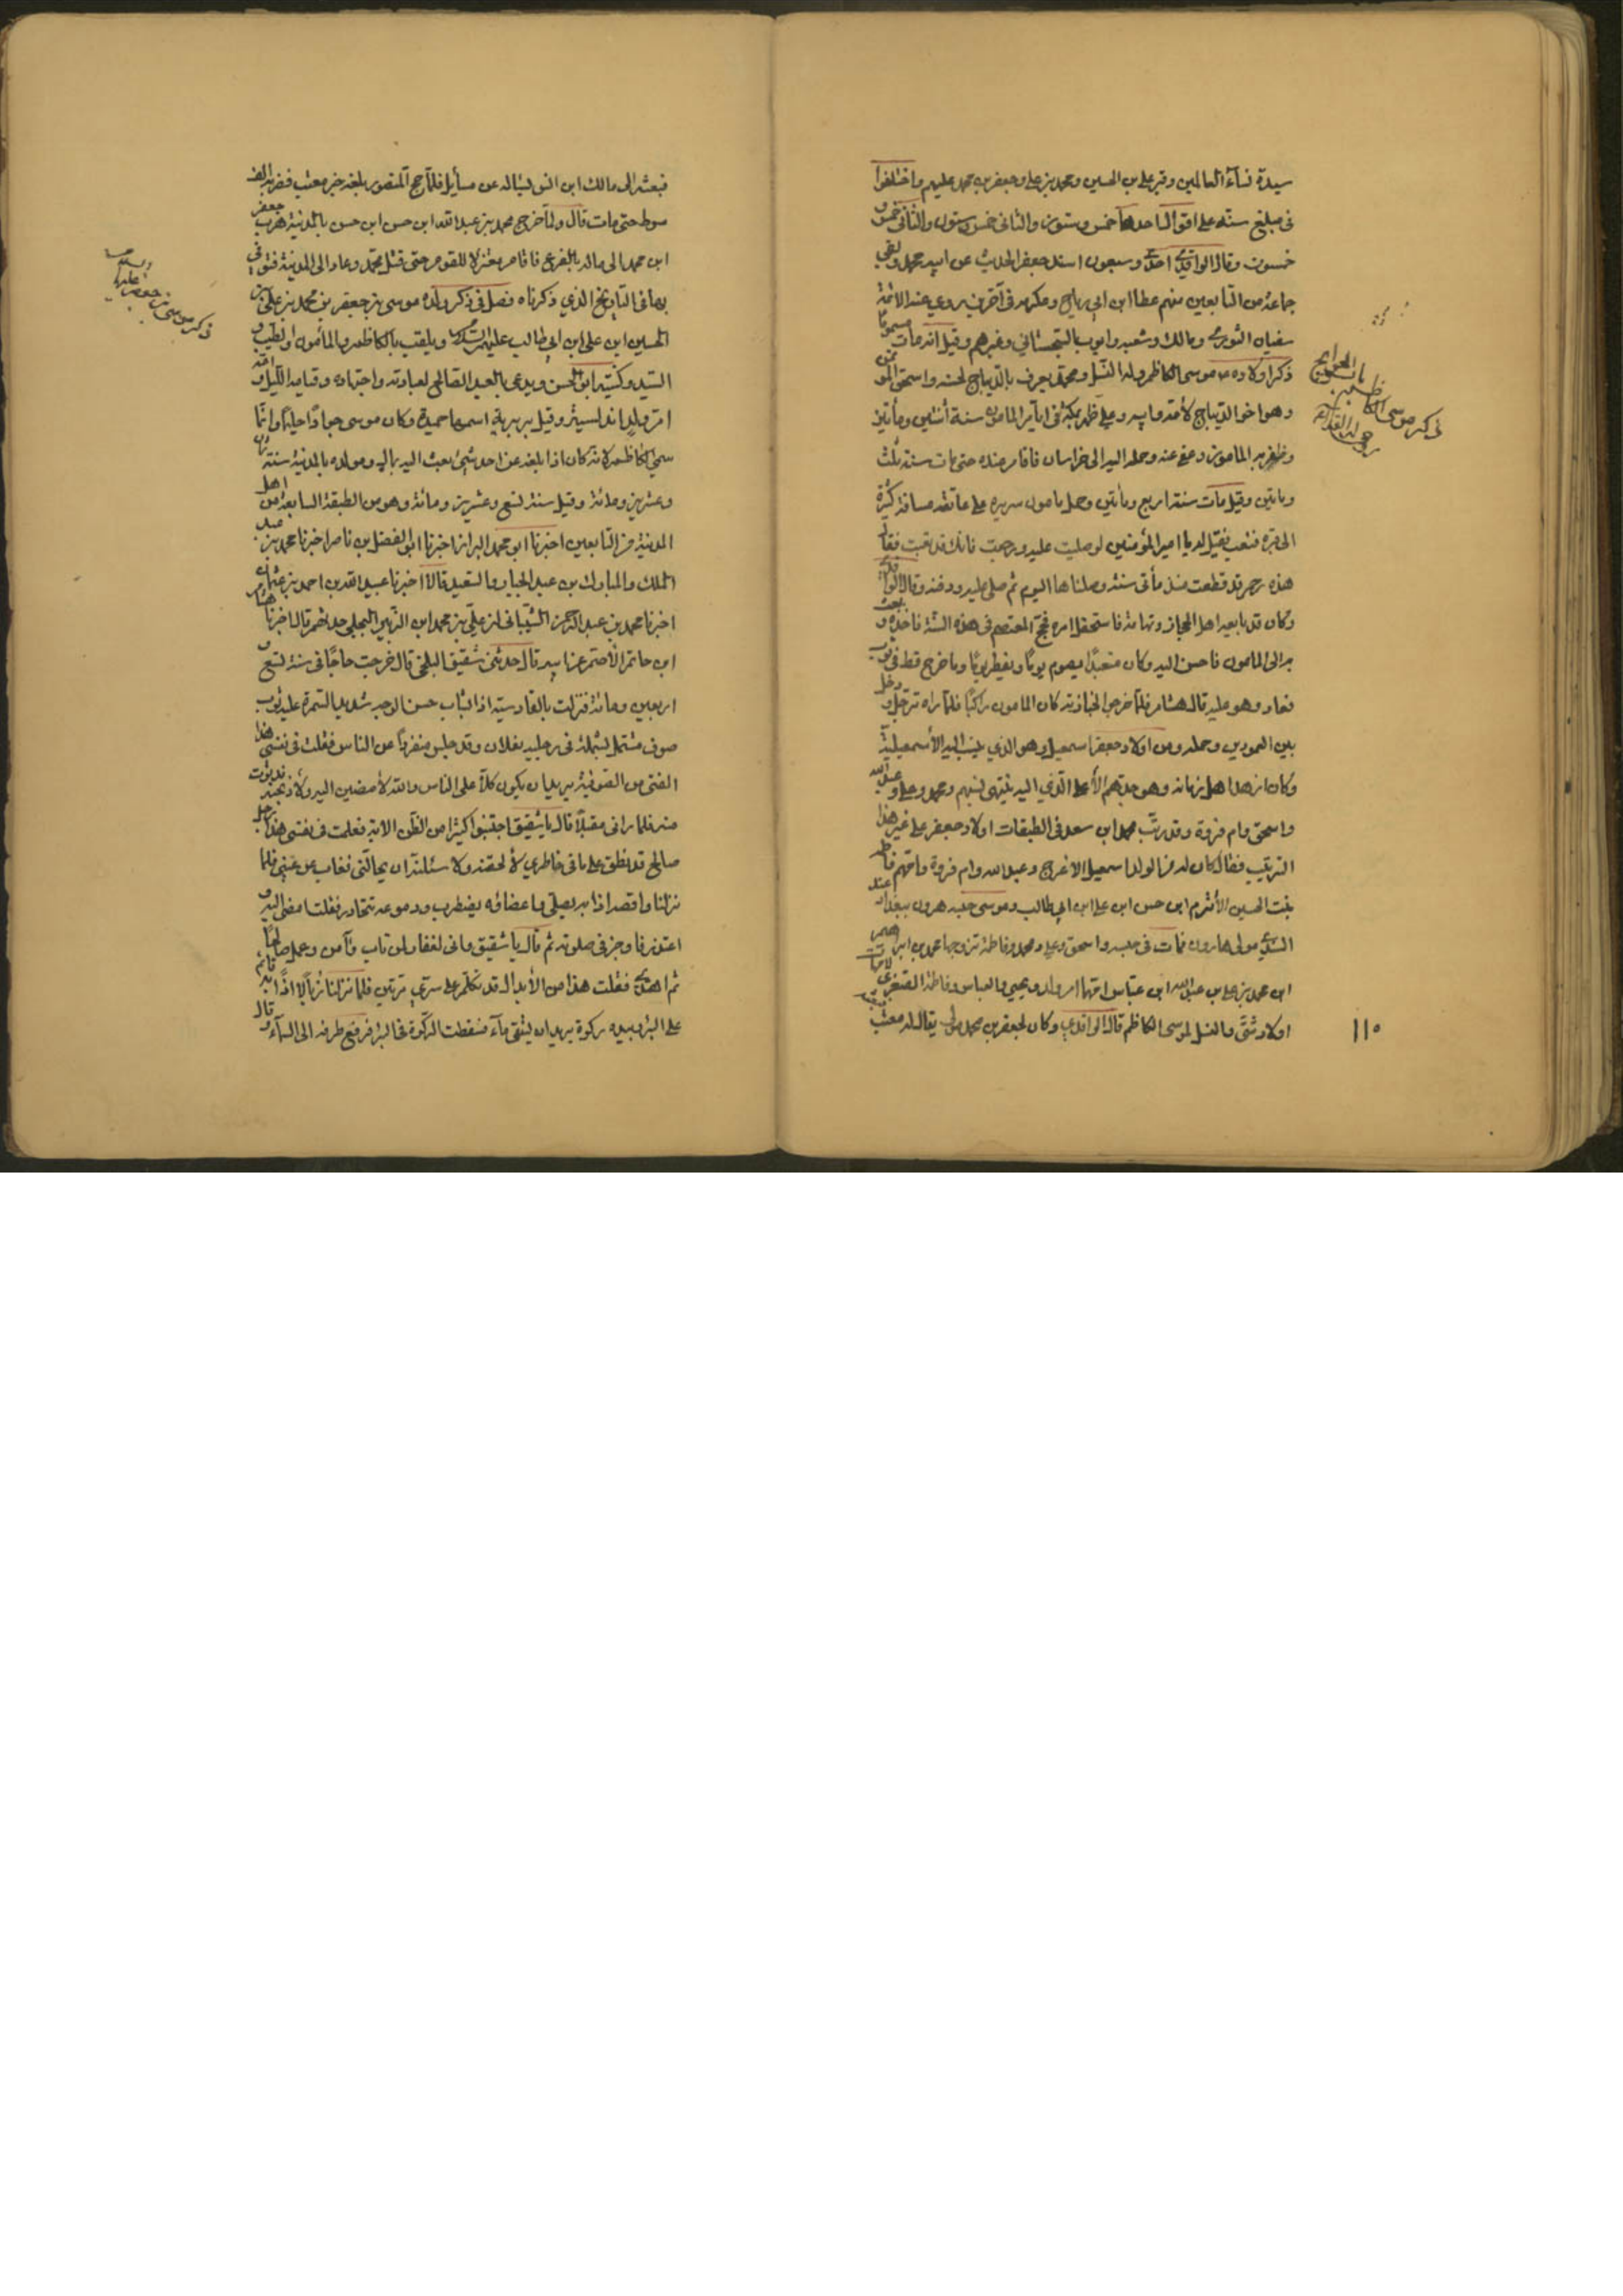 سيدة نسآء العالمين وقبر علي بن الحسين ومحمد بن علي وجعفر بن محمد عليهم واختلفوا
فى مبلغ سنّه على اقوال احدها خمس وستون والثانى خمس وستون والثالث خمس و
خمسون وقال الواقدي احدى وسبعون اسند جعفر الحديث عن ابيه محمد ولقى
جماعة من التابعين منهم عطا ابن ابي رباح وعكرمه فى آخرين روي عنه الائمة
سفيان الثوري ومالك وشعبه وايوب السجستاني وغيرهم وقيل انه مات مسموما
ذكر اولاده موسى الكاظم وله النسل ومحمد يعرف بالديباج لحسنه واسحق المؤتمن
وهو اخو الديباج لأمه وابيه وعلي ظهر بمكة فى ايام المامون سنة أثنتين ومأتين
وظفر به المامون وعفى عنه وحمله اليه الى خراسان فاقام عنده حتى مات سنة ثلث
ومايتين وقيل مات سنة اربع ومأتين وحمل مامون سريره على عاتقه مسافة كثيرة
الى قبره فتعب فقيل له يا امير المؤمنين لو صليت عليه ورجعت فانك قد تعبت فقال
هذه رحم قد قطعت منذ مأتى سنة وصلناها اليوم ثم صلى عليه ودفنه وقال الواقدي
وكان قد بايعه اهل الحجاز وتهامة فاستفحل امره فحج المعتصم فى هذه السنة فاخذه وبعث
به الى المامون فاحسن اليه وكان متعبدًا يصوم يومًا ويفطر يومًا وما خرج قط فى ثوب
فعاد وهو عليه قال هشام فلما خرجوا بجنازته كان المامون راكبًا فلما راه ترجل ودخل
بين العمودين وحمله ومن اولاد جعفر اسمعيل وهو الذي ينسب اليه الأسمعيلية
وكان ازهد اهل زمانه وهو جدهم الأعلى الذي اليه ينتهي نسبهم ومحمد وعلي وعبدالله
واسحق وام فروة وقد رتب محمد ابن سعد فى الطبقات اولاد جعفر على غير هذا
الترتيب فقال كان له من الولد اسمعيل الاعرج وعبدالله وام فروة وامهم فاطمه
بنت الحسين الأثرم ابن حسن ابن علي ابن ابي طالب وموسى حبسه هرون ببغداد عند
السندي مولى هارون فمات فى حبسه واسحق وعلي ومحمد وفاطمة تزوجها محمد بن ابراهيم
ابن محمد بن علي بن عبدالله ابن عباس امها ام ولد ويحيي والعباس وفاطمة الصغرى لأمهات
اولاد شتى والنسل لموسى الكاظم قال الواقدي وكان لجعفر بن محمد مولى يقال له معتب
١١٠
فبعثه الى مالك ابن انس ليساله عن مسأيل فلمّا حج المنصور بلغه خبر معتب فضربه الف
سوط حتى مات قال ولمّا خرج محمد بن عبد الله ابن حسن ابن حسن بالمدينة هرب جعفر
ابن محمد الى ماله بالفرع فاقام معتزلا للقوم حتى قتل محمد وعاد الى المدينة فتوفي
بها فى التاريخ الذي ذكرناه فصل فى ذكر ولده موسى بن جعفر بن محمد بن علي بن
الحسين ابن علي ابن ابي طالب عليهم السلام ويلقب بالكاظم والمأمون والطيب و
السيد وكنيته ابو الحسن ويدعى بالعبد الصالح لعبادته واجتهاده وقيامه الليل وامه
ام ولد اندلسية وقيل بربرية اسمها حميدة وكان موسى جوادًا حليمًا وانما
سمي الكاظم لانه كان اذا بلغه عن احد شيئ بعث اليه بمال ومولده بالمدينة سنة ثمان
وعشرين ومائة وقيل سنة تسع وعشرين ومائة وهو من الطبقة السابعة من اهل
المدينة من التابعين اخبرنا ابو محمد البزاز اخبرنا ابو الفضل بن ناصر اخبرنا محمد بن عبد
الملك والمبارك بن عبد الجبار والسقيد قالا اخبرنا عبيد الله بن احمد بن عثمان
اخبرنا محمد بن عبد الرحمن الشيباني ان علي بن محمد ابن الزبير البجلي حدثهم قال اخبرنا هشام
ابن حاتم الأصم عن ابيه قال حدثني شقيق البلخي قال خرجت حاجًا فى سنة تسع و
اربعين ومائة فنزلت بالقادسية اذا شاب حسن الوجه شديد السمرة عليه ثوب
صوف مشتمل بشملة فى رجليه نعلان وقد جلس منفردًا عن الناس فقلت فى نفسي هذا
الفتى من الصوفية يريد ان يكون كلاً على الناس والله لأمضين اليه ولأوبخنه فدنوت
منه فلما رانى مقبلاً قال يا شقيق اجتنبوا كثيرًا من الظن الاية فقلت فى نفسي هذا رجل
صالح قد نطق على ما فى خاطري لألحقنه ولأسئلنه ان يحالّني فغاب عن عيني فلما
نزلنا واقصة اذا به يصلّي واعضائه يضطرب ودموعه تتحادر فقلت امضي اليه و
اعتذر فاوجز فى صلوته ثم قال يا شقيق وانى لغفار لمن تاب وآمن وعمل صالحًا
ثم اهتدى فقلت هذا من الأبدال قد تكلم على سري مرتين فلما نزلنا زبالا اذا به قائم
على البئر وبيده ركوة يريدان يستقى مآءً فسقطت الركوة فى البئر فرفع طرفه الى السمآء وقال